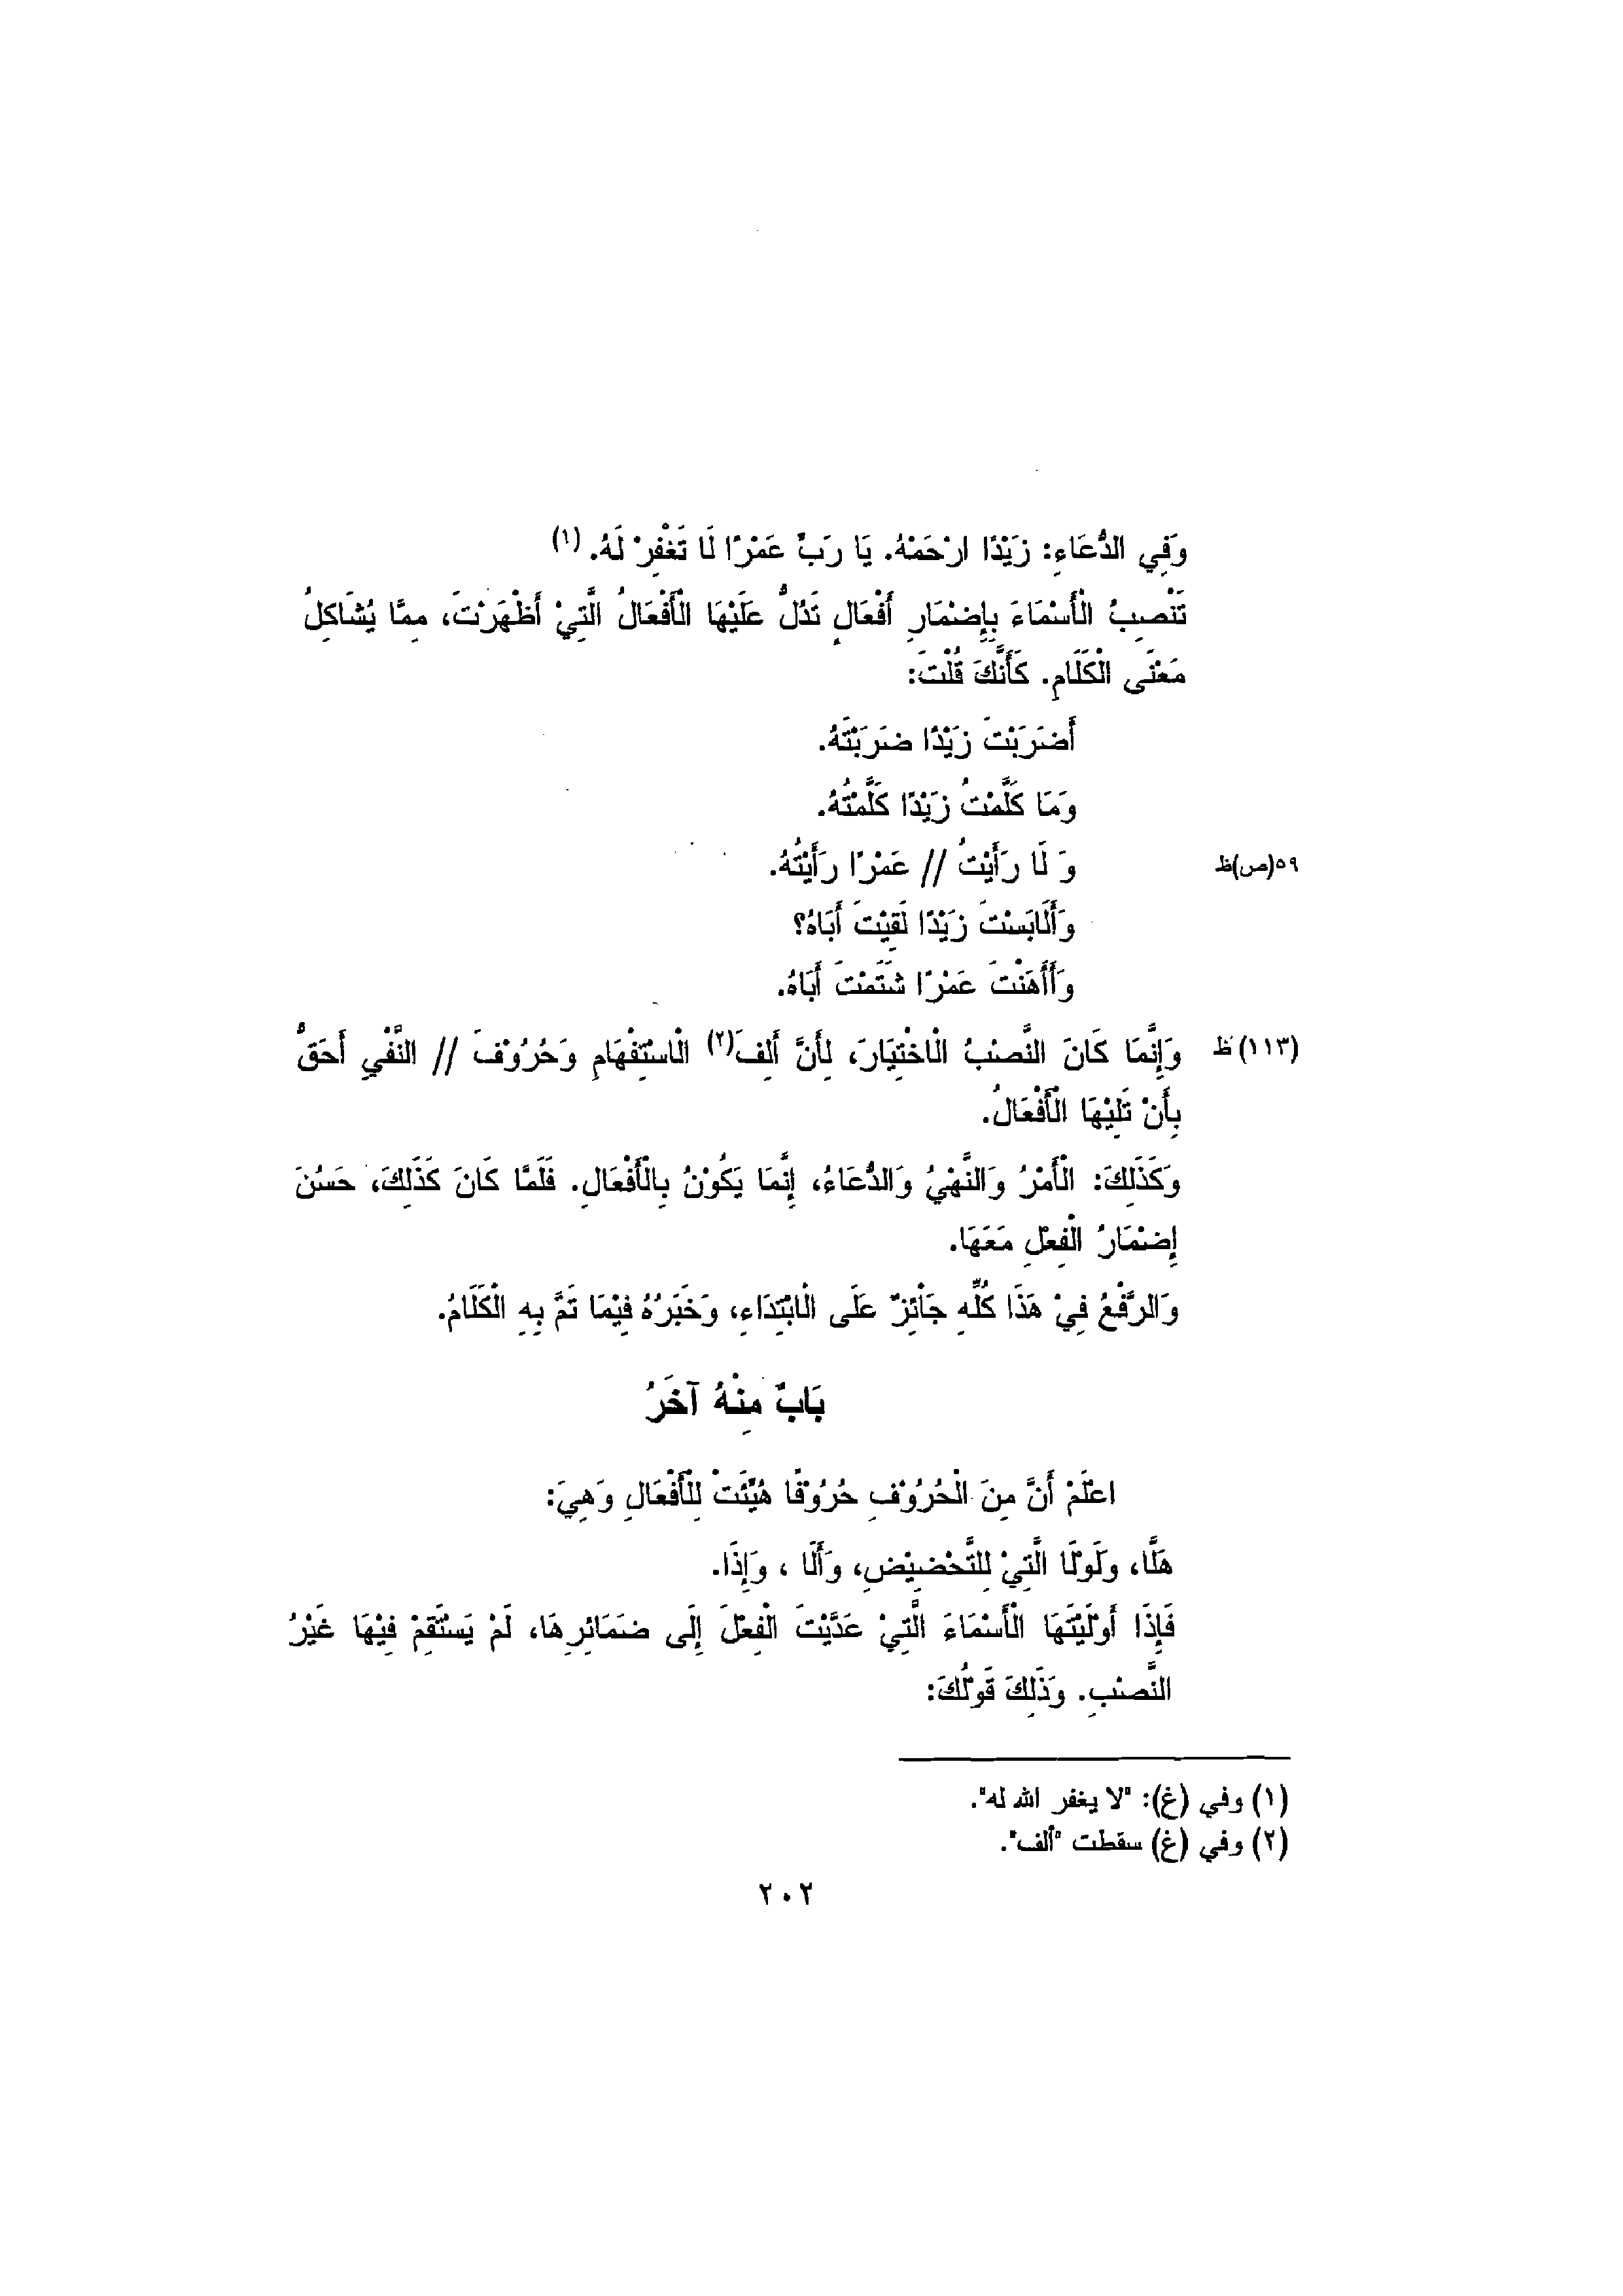 وَفِي الدُّعَاءِ: زَيْدًا ارْحَمْهُ. يَا رَبِّ عَمْرًا لَا تَغْفِرْ لَهُ. (١)
تَنْصِبُ الْأَسْمَاءَ بِإِضْمَارِ أَفْعَالٍ تَدُلُّ عَلَيْهَا الْأَفْعَالُ الَّتِيْ أَظْهَرْتَ، مِمَّا يُشَاكِلُ
مَعْنَى الْكَلَامِ. كَأَنَّكَ قُلْتَ:
أَضَرَبْتَ زَيْدًا ضَرَبْتَهُ.
وَمَا كَلَّمْتُ زَيْدًا كَلَّمْتُهُ.
٥٩(ص)ظ وَ لَا رَأَيْتُ // عَمْرًا رَأَيْتُهُ.
وَأَلَابَسْتَ زَيْدًا لَقِيْتَ أَبَاهُ؟
وَأَأَهَنْتَ عَمْرًا شَتَمْتَ أَبَاهُ.
(١١٣)ظ وَإِنَّمَا كَانَ النَّصْبُ الْاخْتِيَارَ، لِأَنَّ أَلِفَ(٢) الْاسْتِفْهَامِ وَحُرُوْفَ // النَّفْيِ أَحَقُّ
بِأَنْ تَلِيْهَا الْأَفْعَالُ.
وَكَذَلِكَ: الْأَمْرُ وَالنَّهْيُ وَالدُّعَاءُ، إِنَّمَا يَكُوْنُ بِالْأَفْعَالِ. فَلَمَّا كَانَ كَذَلِكَ، حَسُنَ
إِضْمَارُ الْفِعْلِ مَعَهَا.
وَالرَّفْعُ فِيْ هَذَا كُلِّهِ جَائِزٌ عَلَى الْابْتِدَاءِ، وَخَبَرُهُ فِيْمَا تَمَّ بِهِ الْكَلَامُ.
بَابٌ مِنْهُ آخَرُ
اعْلَمْ أَنَّ مِنَ الْحُرُوْفِ حُرُوْفًا هُيِّئَتْ لِلْأَفْعَالِ وَهِيَ:
هَلَّا، وَلَوْلَا الَّتِيْ لِلتَّحْضِيْضِ، وَأَلَّا ، وَإِذَا.
فَإِذَا أَوْلَيْتَهَا الْأَسْمَاءَ الَّتِيْ عَدَّيْتَ الْفِعْلَ إِلَى ضَمَائِرِهَا، لَمْ يَسْتَقِمْ فِيْهَا غَيْرُ
النَّصْبِ. وَذَلِكَ قَوْلُكَ:
(١) وفي (غ): "لا يغفر الله له".
(٢) وفي (غ) سقطت "ألف".
٢٠٢